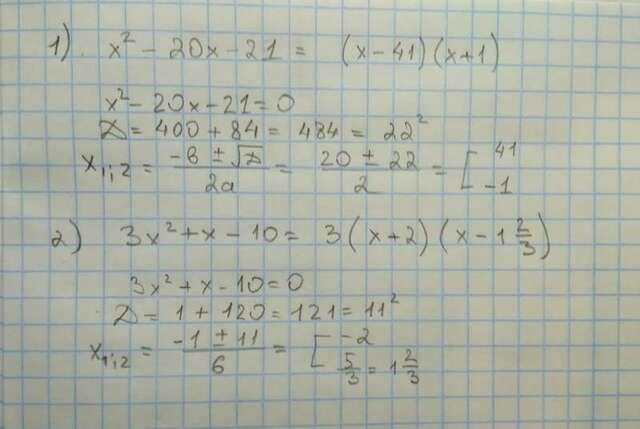 1) x² - 20x - 21 = (x - 41)(x + 1)
x² - 20x - 21 = 0
D = 400 + 84 = 484 = 22²
x₁;₂ = (-b ± √D)/2a = (20 ± 22)/2 = [ 41 -1
2) 3x² + x - 10 = 3(x + 2)(x - 1 2/3)
3x² + x - 10 = 0
D = 1 + 120 = 121 = 11²
x₁;₂ = (-1 ± 11)/6 = [ -2 5/3 = 1 2/3